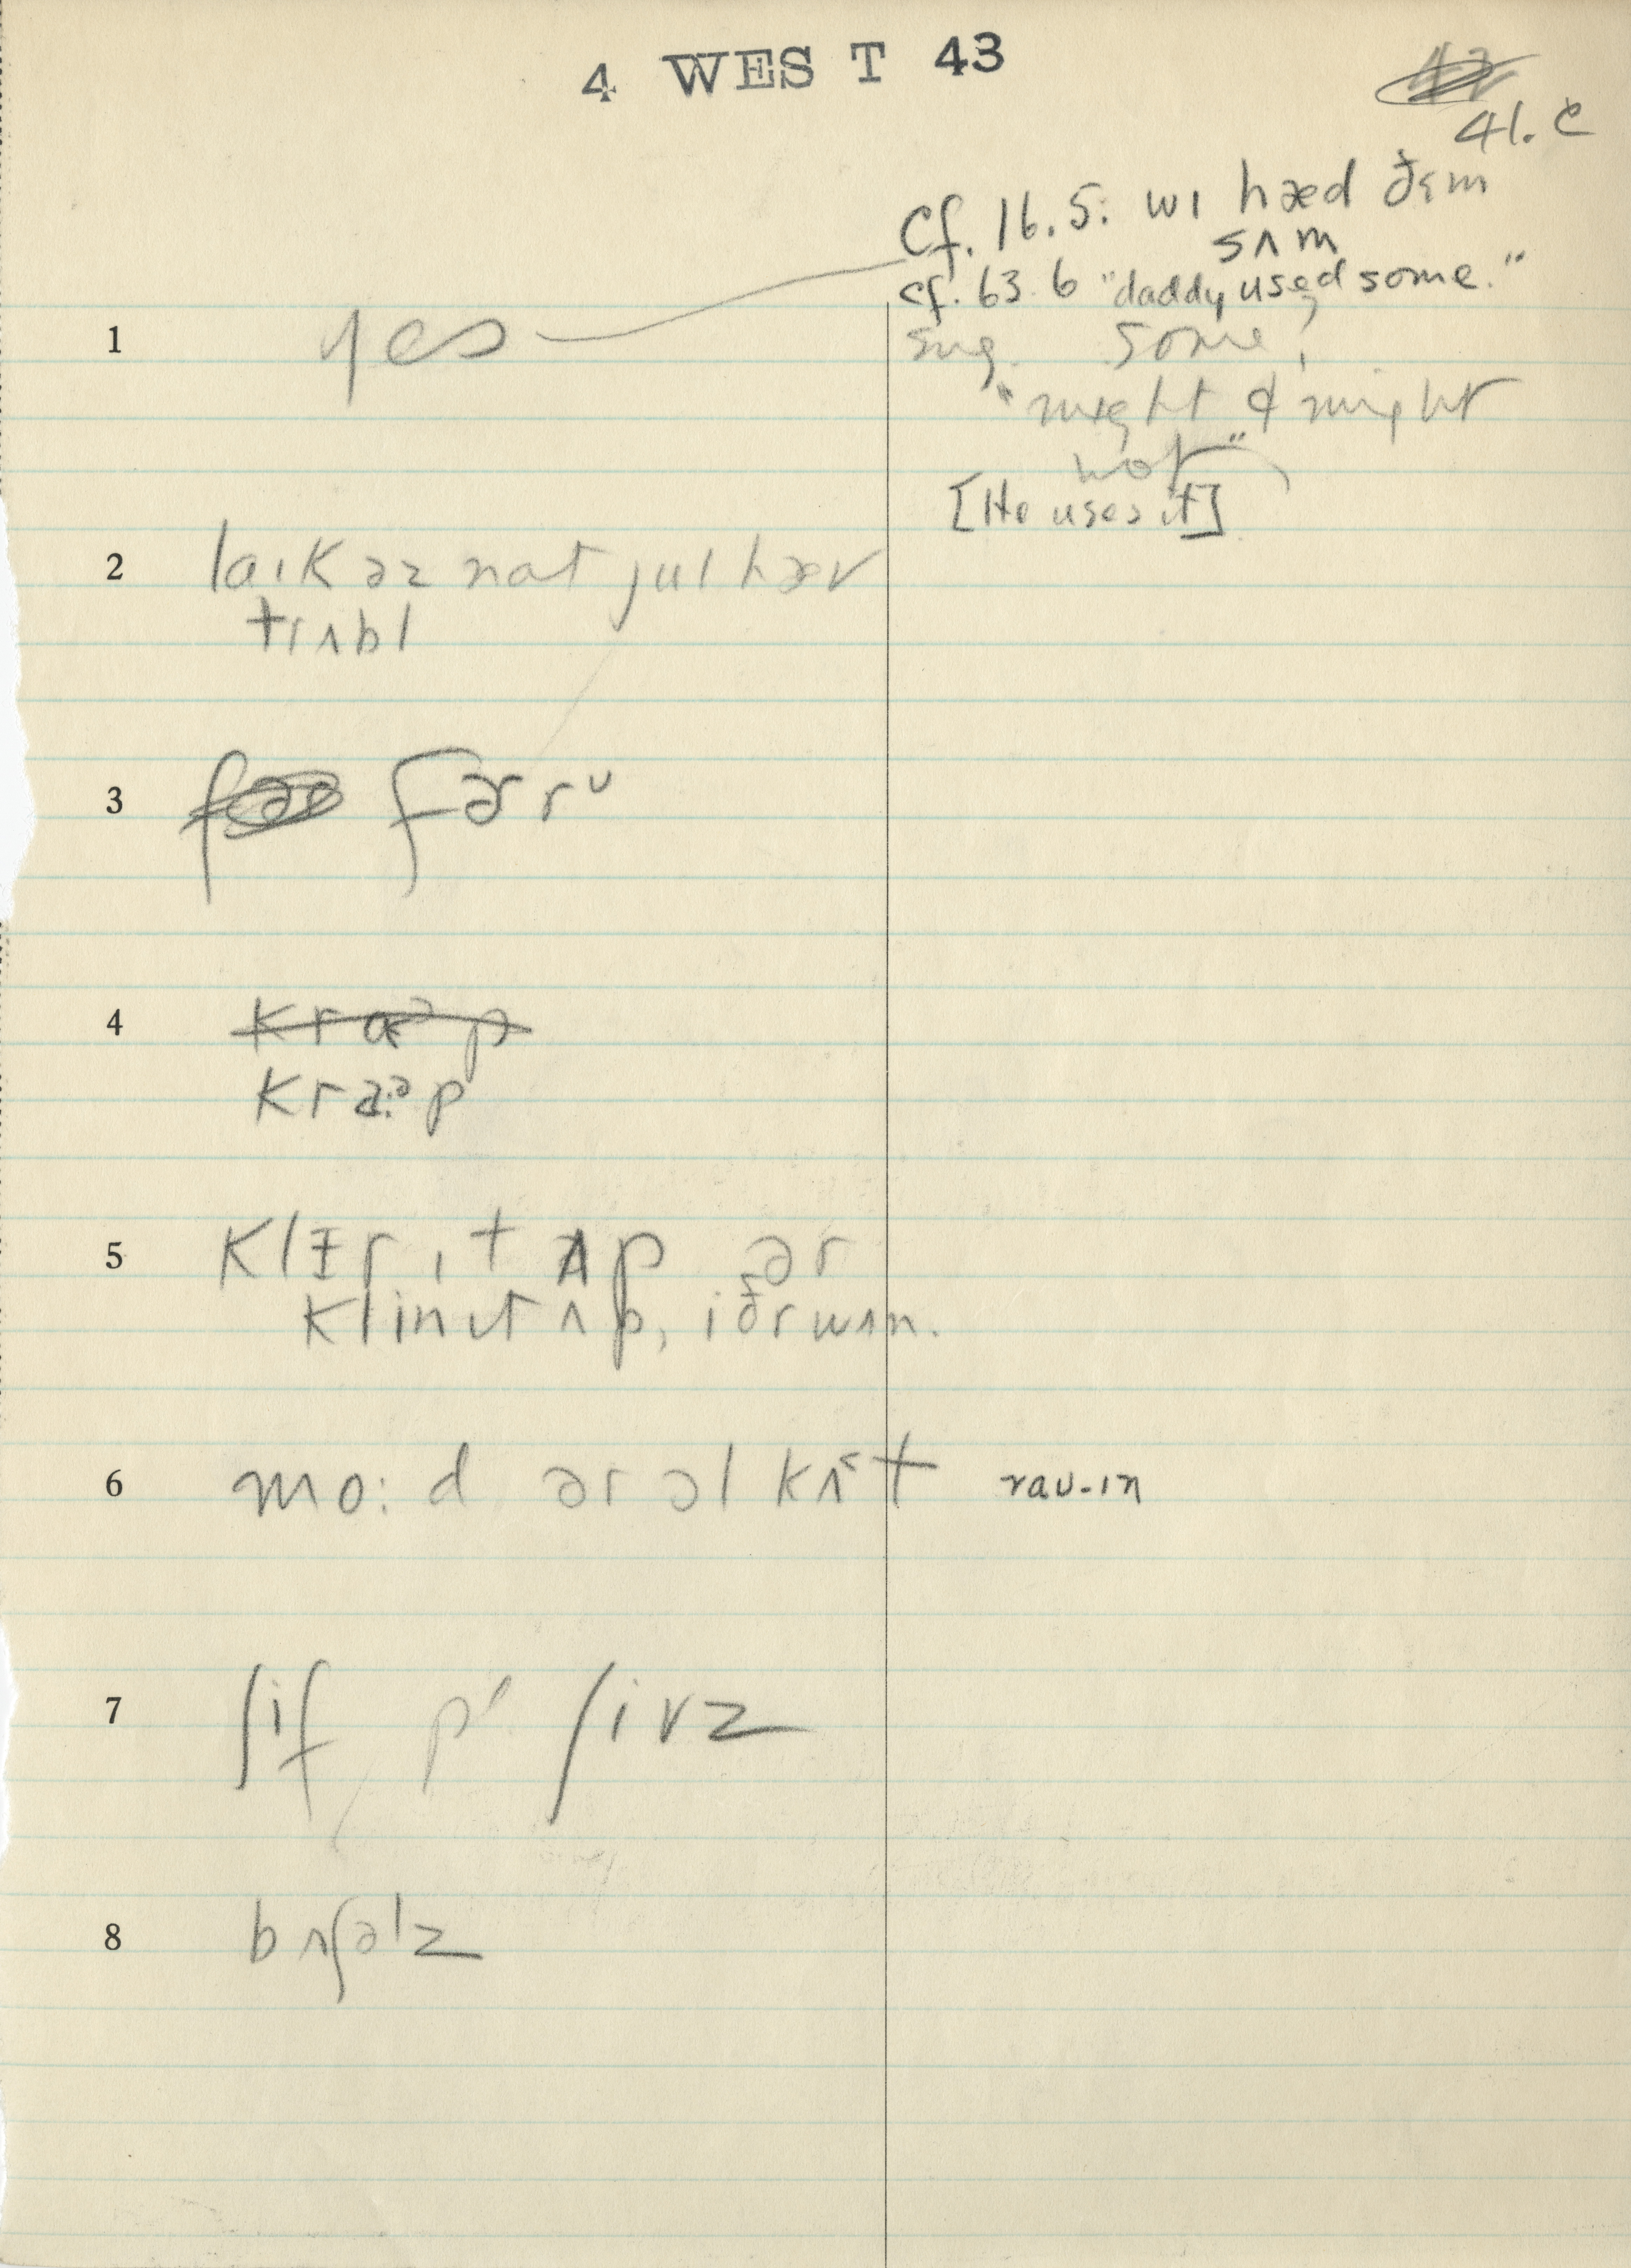 4 WEST 43
41. C
Cf. 16.5: wɪ hæd ðɛm
sʌm
cf. 63.6 "daddy used some."
1 yes
sug. some?
"might & might
not"
[He uses it]
2 laɪk əz nat jul hæv
trʌbl
3 fɚrᴜ
4 kraᵊp
kra:ᵊp
5 klɪr ɪt ʌp ər
klin ɪt ʌp, iðr wʌn.
6 mo:d ər əl kʌt rau-ɪn
7 ʃif pl ʃivz
8 bʌʃəlz